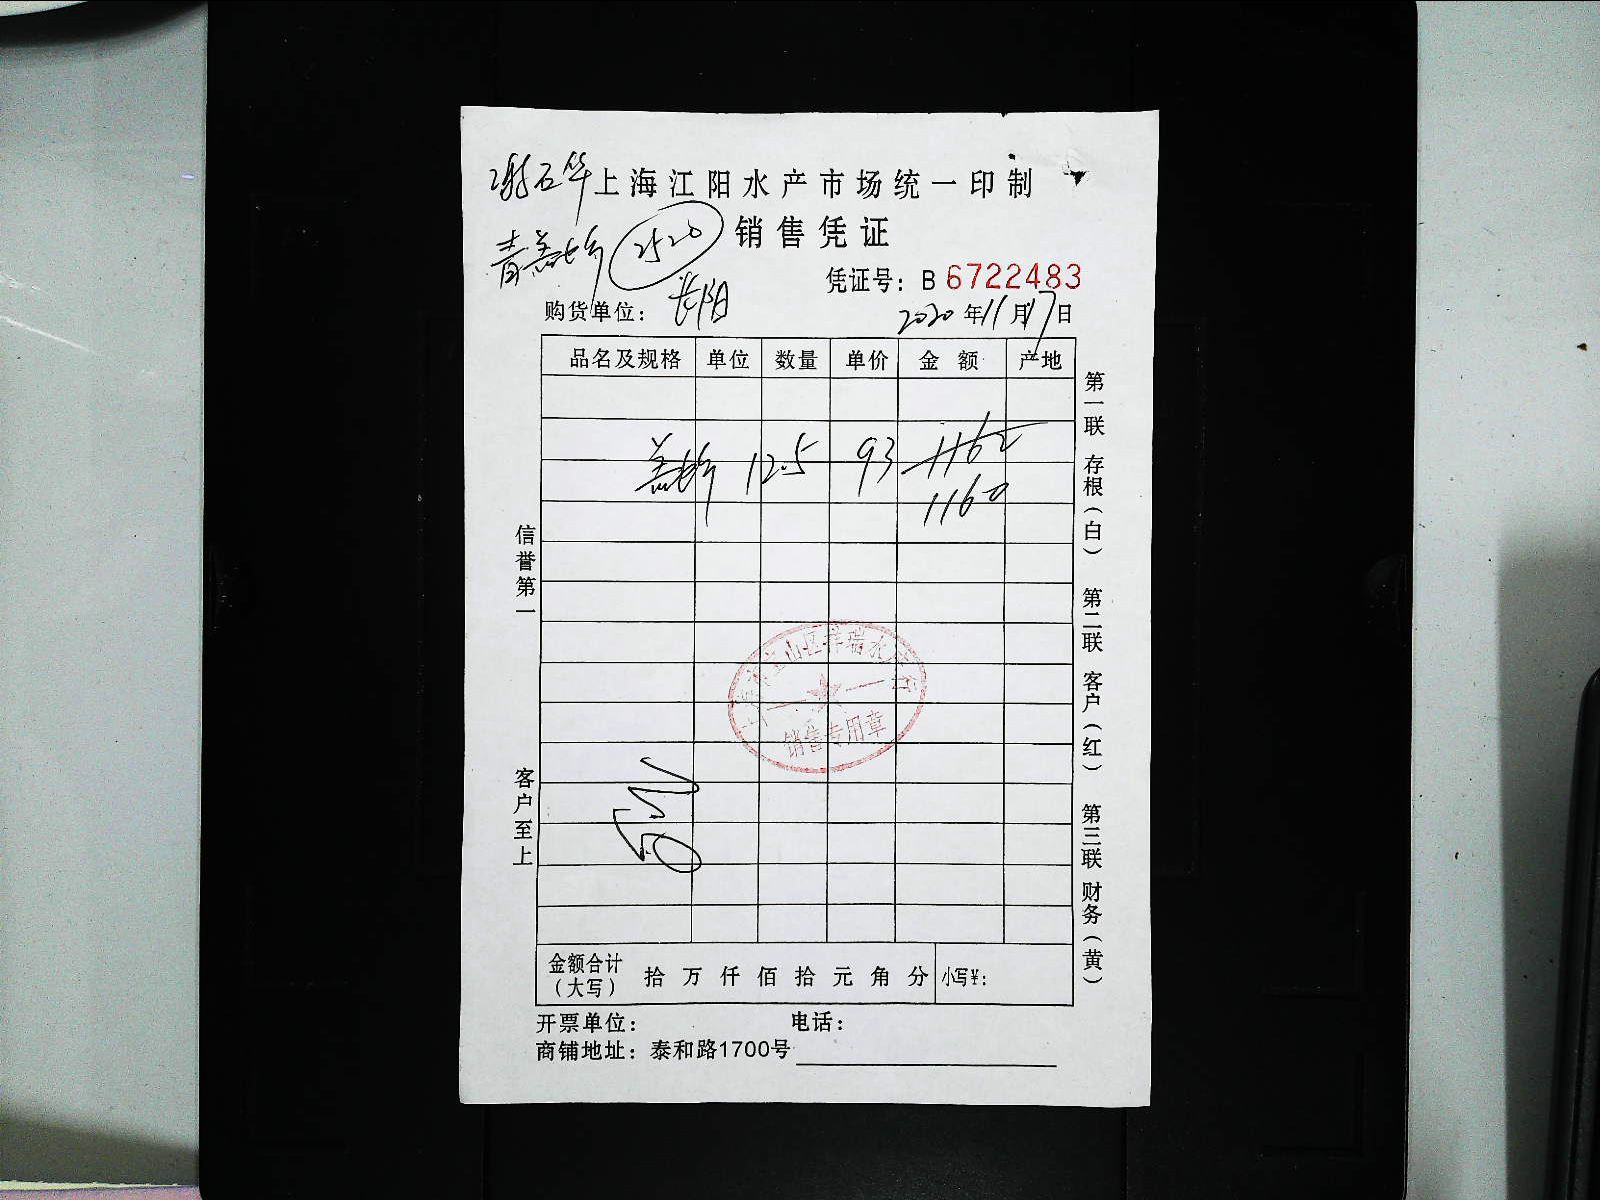 谢石华 上海江阳水产市场统一印制
2520 销售凭证
凭证号：B 6722483
购货单位：长阳 2020年11月17日
品名及规格 单位 数量 单价 金额 产地
12.5 93 1162
1160
信誉第一
客户至上
第一联 存根（白） 第二联 客户（红） 第三联 财务（黄）
山区祥瑞水产行
销售专用章
金额合计（大写） 拾 万 仟 佰 拾 元 角 分 小写¥：
开票单位： 电话：
商铺地址：泰和路1700号